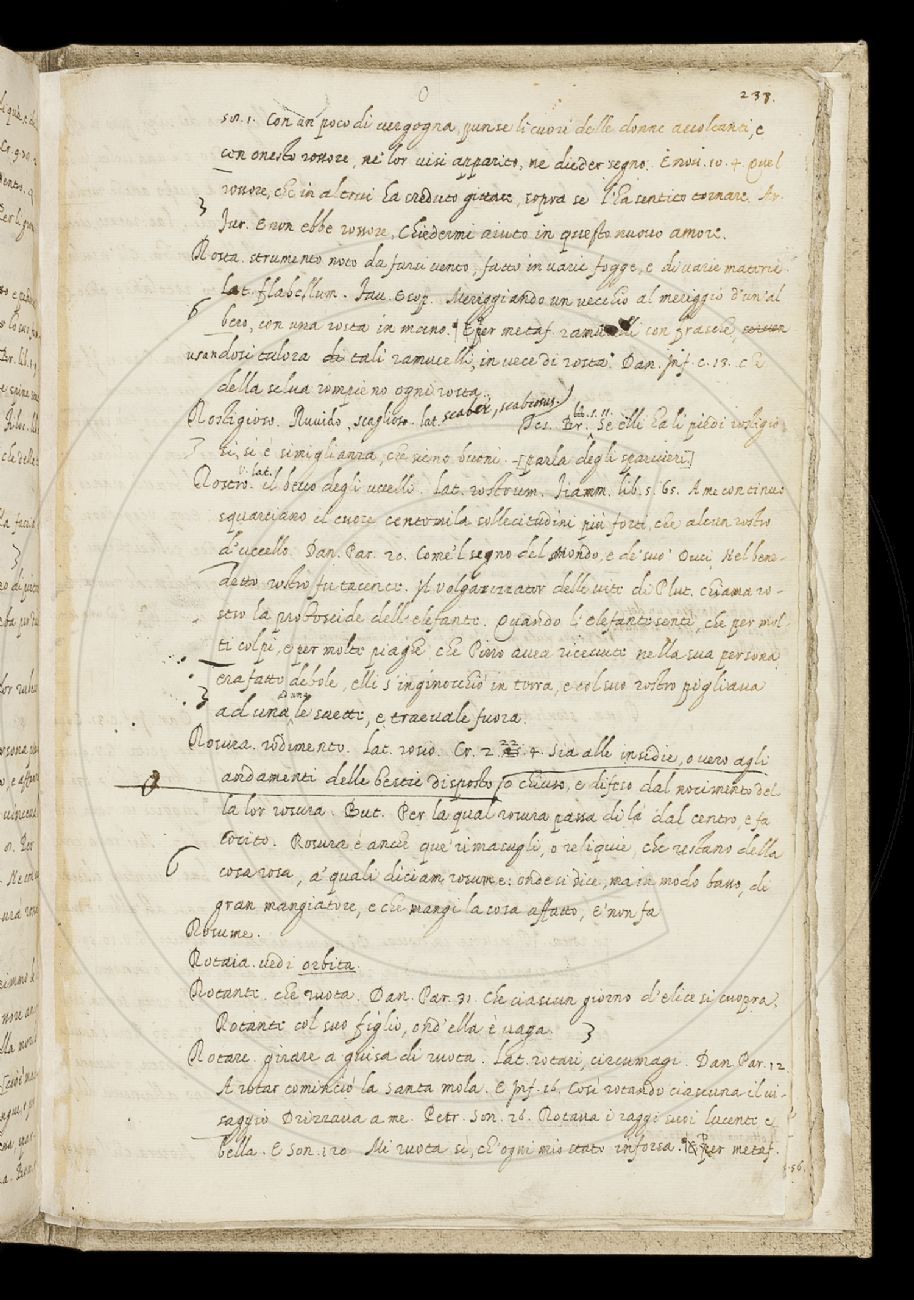 O
238.
son. 1. Con un poco di vergogna, punse li cuori delle donne ascoltanti, e
con onesto rossore, ne' lor visi apparito, ne dieder segno. E nov. 10. 4. Quel
rossore, che in altrui ha creduto gittare, sopra se l'ha sentito tornare. Ar.
fur. E non ebbe rossore, Chiedermi aiuto in questo nuovo amore.
Rosta. strumento noto da farsi vento, fatto in varie fogge, e di varie materie
Lat. flabellum. Fav. Esop. Meriggiando un vecchio al meriggio d'un'al
bero, con una rosta in mano. E per metaf. ramucelli con frasche,
usandosi talora tali ramucelli, in vece di rosta. Dan. Inf. c. 13. C E
della selva rompieno ogni rosta.
Rostigioso. Ruvido, scaglioso. lat. scaber, scabiosus.
Tes. Br. lib. 5. 11. Se elli ha li piedi rostigio
si, si è simiglianza, che sieno buoni. [parla degli sparvieri]
Rostro. v. lat. il becco degli uccelli. Lat. rostrum. Fiamm. lib. 5. 65. A me continuo
squarciano il cuore centomila sollecitudini più forti, che alcun rostro
d'uccello. Dan. Par. 20. Come'l segno del Mondo, e de' suo' Duci, Nel bene-
detto rostro fu tacente. Il volgarizzator delle vite di Plut. chiama ro-
stro la proboscide dell'elefante. Quando l'elefante sentì, che per mol-
ti colpi, e per molte piaghe che Pirro avea ricevute nella sua persona
era fatto debole, elli s'inginocchiò in terra, e col suo rostro pigliava
ad una ad una le saette, e traevale fuora.
Rosura. rodimento. Lat. rosio. Cr. 2. 22. 4. Sia alle insidie, o vero agli
andamenti delle bestie disposto, o chiuso, e difeso dal nocimento del
la lor rosura. But. Per la qual rosura passa di là dal centro, e fa
Cocito. Rosura è anche que' rimasugli, o reliquie, che restano della
cosa rosa, a' quali diciam, rosume: onde si dice, ma in modo basso, di
gran mangiatore, e che mangi la cosa affatto, E' non fa
Rosume.
Rotaia. vedi orbita.
Rotante. che ruota. Dan. Par. 31. Che ciascun giorno d'elice si cuopra,
Rotante col suo figlio, ond'ella è vaga.
Rotare. girare a guisa di ruota. Lat. rotari, circumagi. Dan. Par. 12.
A rotar cominciò la santa mola. E Inf. 16. Così rotando ciascuna il vi-
saggio Drizzava a me. Petr. Son. 26. Rotava i raggi suoi lucente e
bella. E Son. 120. Mi ruota sì, ch'ogni mio stato inforsa. E per metaf.